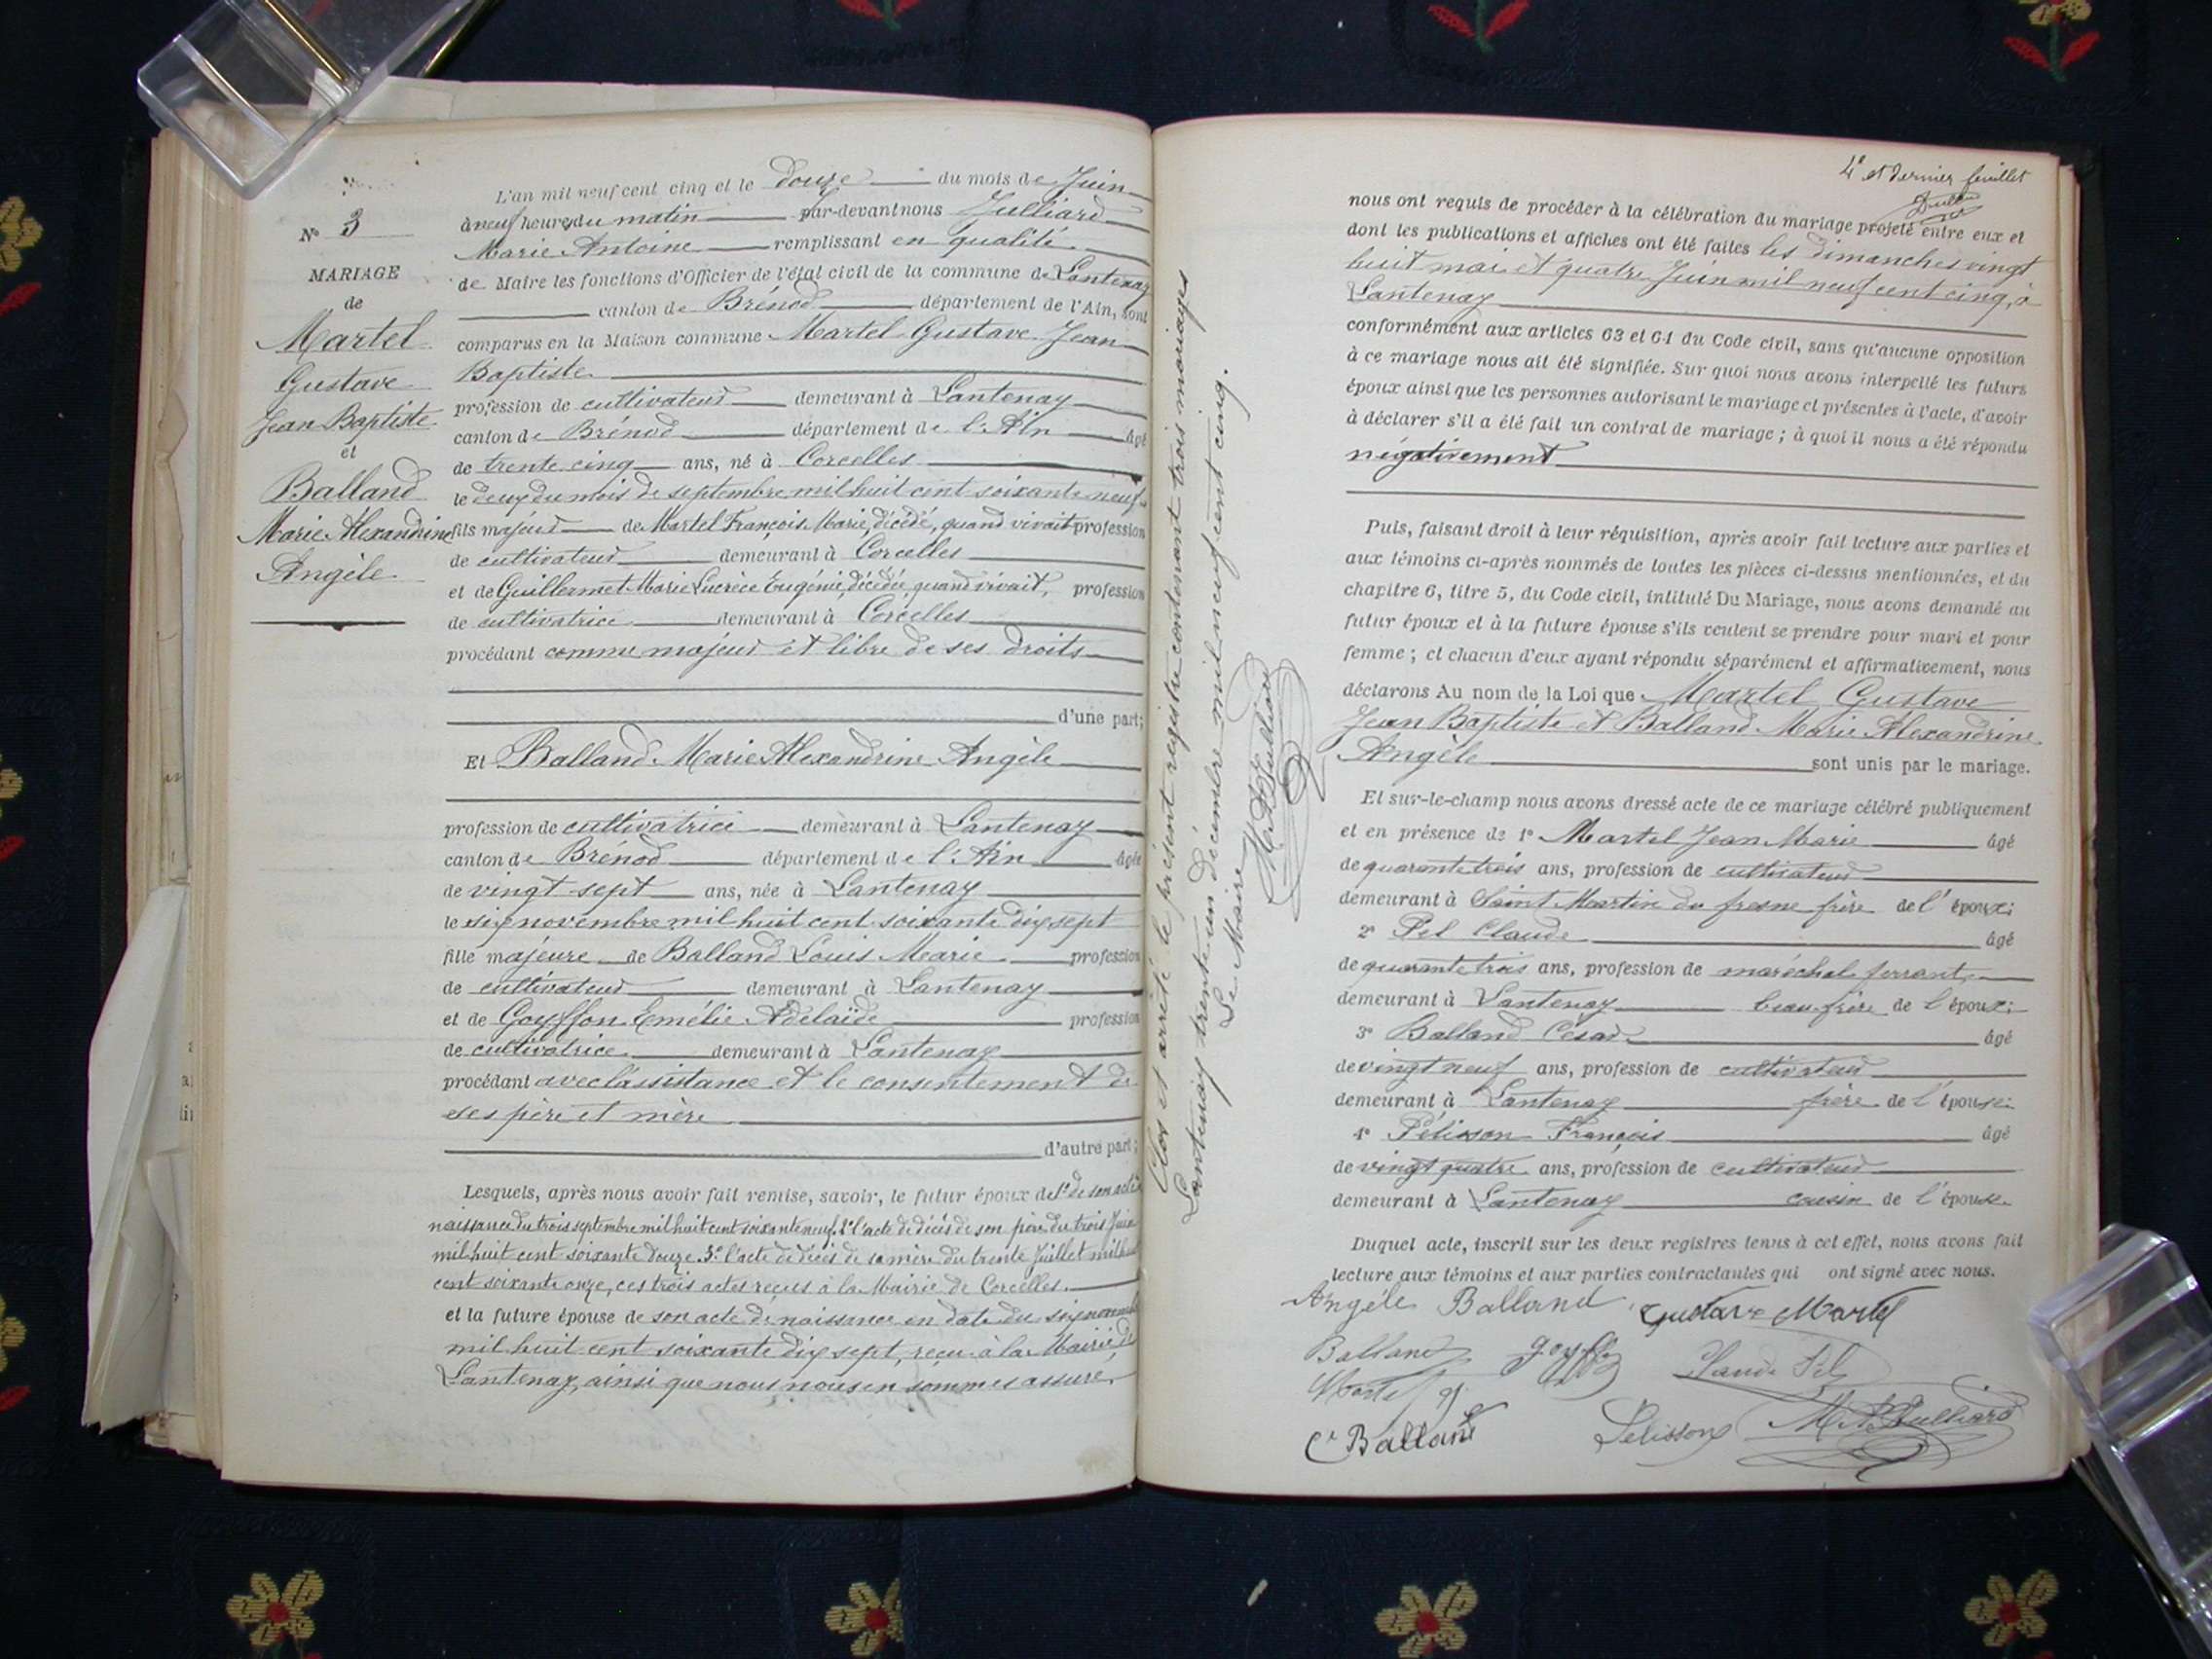 N° 3
MARIAGE
de
Martel
Gustave
Jean Baptiste
et
Balland
Marie Alexandrine
Angèle
L'an mil neuf cent cinq et le douze du mois de Juin
à neuf heures du matin par-devant nous Julliard
Marie Antoine remplissant en qualité
de Maire les fonctions d'Officier de l'état civil de la commune de Lantenay
canton de Brénod département de l'Ain, sont
comparus en la Maison commune Martel Gustave Jean
Baptiste
profession de cultivateur demeurant à Lantenay
canton de Brénod département de l'Ain âgé
de trente cinq ans, né à Corcelles
le deux du mois de septembre mil huit cent soixante neuf
fils majeur de Martel François Marie, décédé, quand vivait profession
de cultivateur demeurant à Corcelles
et de Guillermet Marie Lucrèce Eugénie, décédée, quand vivait, profession
de cultivatrice demeurant à Corcelles
procédant comme majeur et libre de ses droits
d'une part;
Et Balland Marie Alexandrine Angèle
profession de cultivatrice demeurant à Lantenay
canton de Brénod département de l'Ain âgée
de vingt sept ans, née à Lantenay
le six novembre mil huit cent soixante dix sept
fille majeure de Balland Louis Marie profession
de cultivateur demeurant à Lantenay
et de Goyffon Emélie Adelaïde profession
de cultivatrice demeurant à Lantenay
procédant avec l'assistance et le consentement de
ses père et mère
d'autre part;
Lesquels, après nous avoir fait remise, savoir, le futur époux de 1° de son acte de
naissance du trois septembre mil huit cent soixante neuf. 2° l'acte de décès de son père du trois Juin
mil huit cent soixante douze. 3° l'acte de décès de sa mère du trente Juillet mil huit
cent soixante onze, ces trois actes reçus à la Mairie de Corcelles.
et la future épouse de son acte de naissance en date du six novembre
mil huit cent soixante dix sept, reçu à la Mairie de
Lantenay, ainsi que nous nous en sommes assuré,
Clos et arrêté le présent registre contenant trois mariages
Lantenay trente un décembre mil neuf cent cinq.
Le Maire
M A Julliard
4e et dernier feuillet
nous ont requis de procéder à la célébration du mariage projeté entre eux et
dont les publications et affiches ont été faites les dimanches vingt
huit mai et quatre Juin mil neuf cent cinq, à
Lantenay
conformément aux articles 63 et 64 du Code civil, sans qu'aucune opposition
à ce mariage nous ait été signifiée. Sur quoi nous avons interpellé les futurs
époux ainsi que les personnes autorisant le mariage et présentes à l'acte, d'avoir
à déclarer s'il a été fait un contrat de mariage ; à quoi il nous a été répondu
négativement
Puis, faisant droit à leur réquisition, après avoir fait lecture aux parties et
aux témoins ci-après nommés de toutes les pièces ci-dessus mentionnées, et du
chapitre 6, titre 5, du Code civil, intitulé Du Mariage, nous avons demandé au
futur époux et à la future épouse s'ils veulent se prendre pour mari et pour
femme ; et chacun d'eux ayant répondu séparément et affirmativement, nous
déclarons Au nom de la Loi que Martel Gustave
Jean Baptiste et Balland Marie Alexandrine
Angèle sont unis par le mariage.
Et sur-le-champ nous avons dressé acte de ce mariage célébré publiquement
et en présence de 1° Martel Jean Marie âgé
de quarante trois ans, profession de cultivateur
demeurant à Saint Martin du fresne frère de l'époux;
2° Pel Claude âgé
de quarante trois ans, profession de maréchal ferrant
demeurant à Lantenay beau frère de l'époux;
3° Balland César âgé
de vingt neuf ans, profession de cultivateur
demeurant à Lantenay frère de l'épouse;
4° Pélisson François âgé
de vingt quatre ans, profession de cultivateur
demeurant à Lantenay cousin de l'épouse
Duquel acte, inscrit sur les deux registres tenus à cet effet, nous avons fait
lecture aux témoins et aux parties contractantes qui ont signé avec nous.
Angèle Balland Gustave Martel
Balland Goyffon Claude Pel
Martel
C. Balland Pelisson M A Julliard